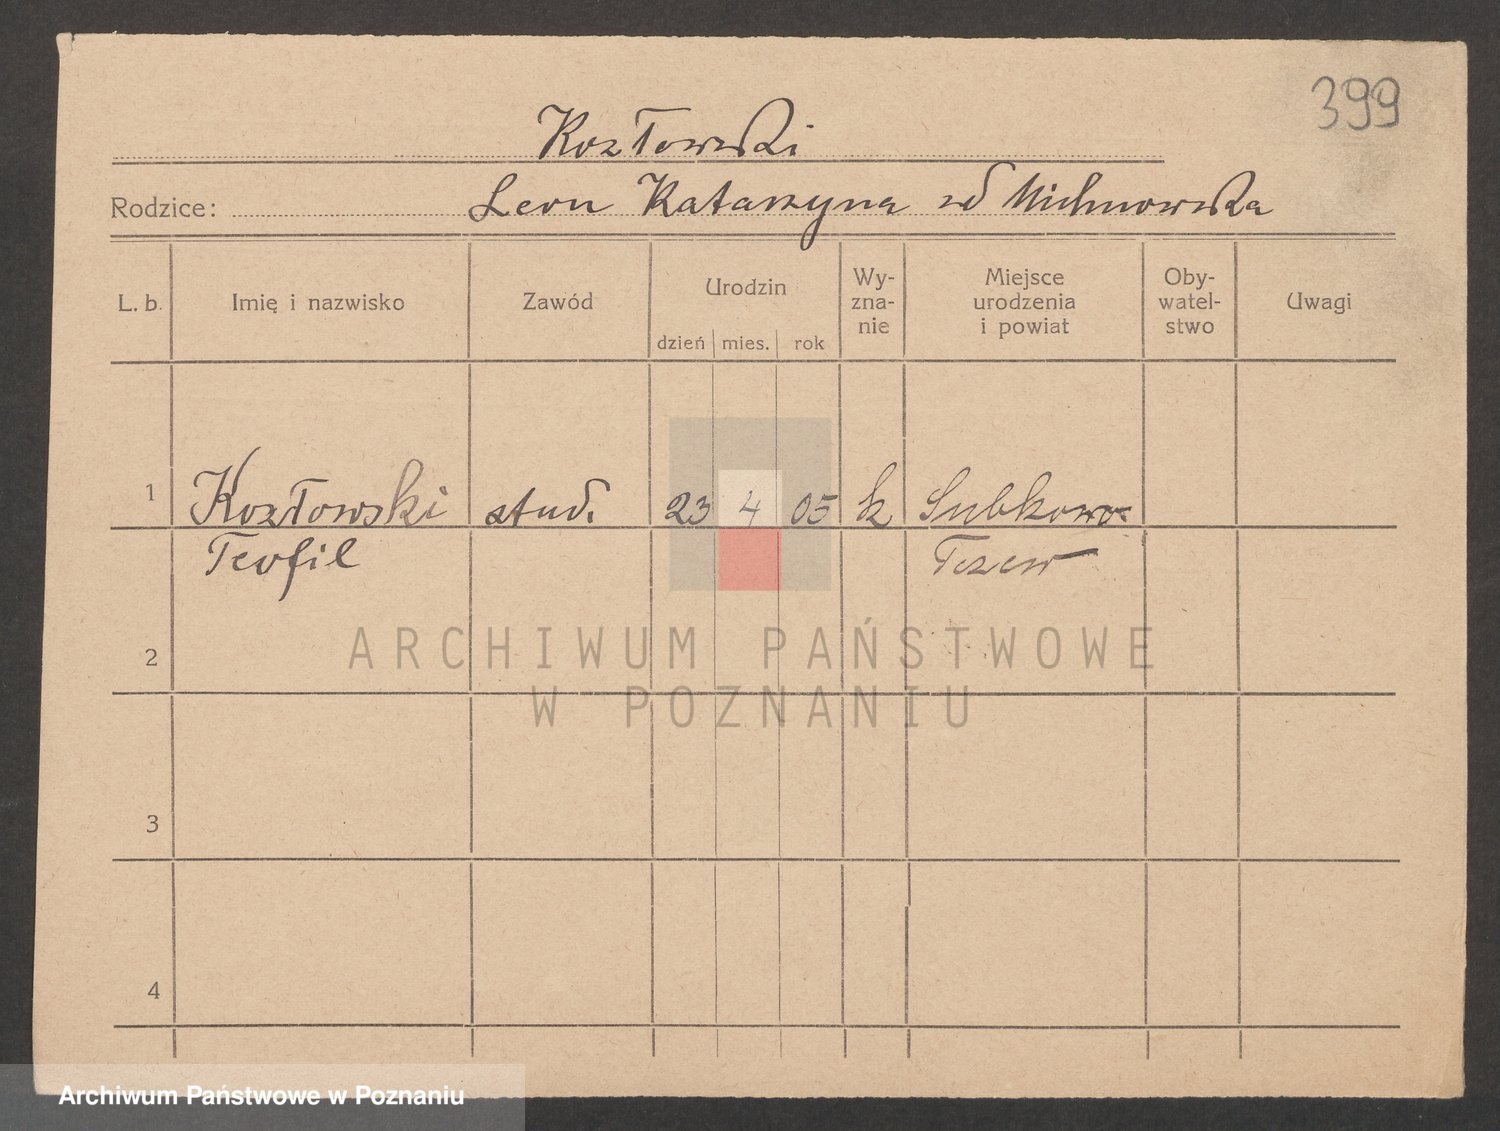 399
Kozłowski
Rodzice: Leon Katarzyna zd Michnowska
L. b. Imię i nazwisko Zawód Urodzin dzień mies. rok Wy-zna-nie Miejsce urodzenia i powiat Oby-watel-stwo Uwagi
1 Kozłowski stud. 23 4 05 k Subkowo-
Teofil Tczew
ARCHIWUM PAŃSTWOWE
2
W POZNANIU
3
4
Archiwum Państwowe w Poznaniu